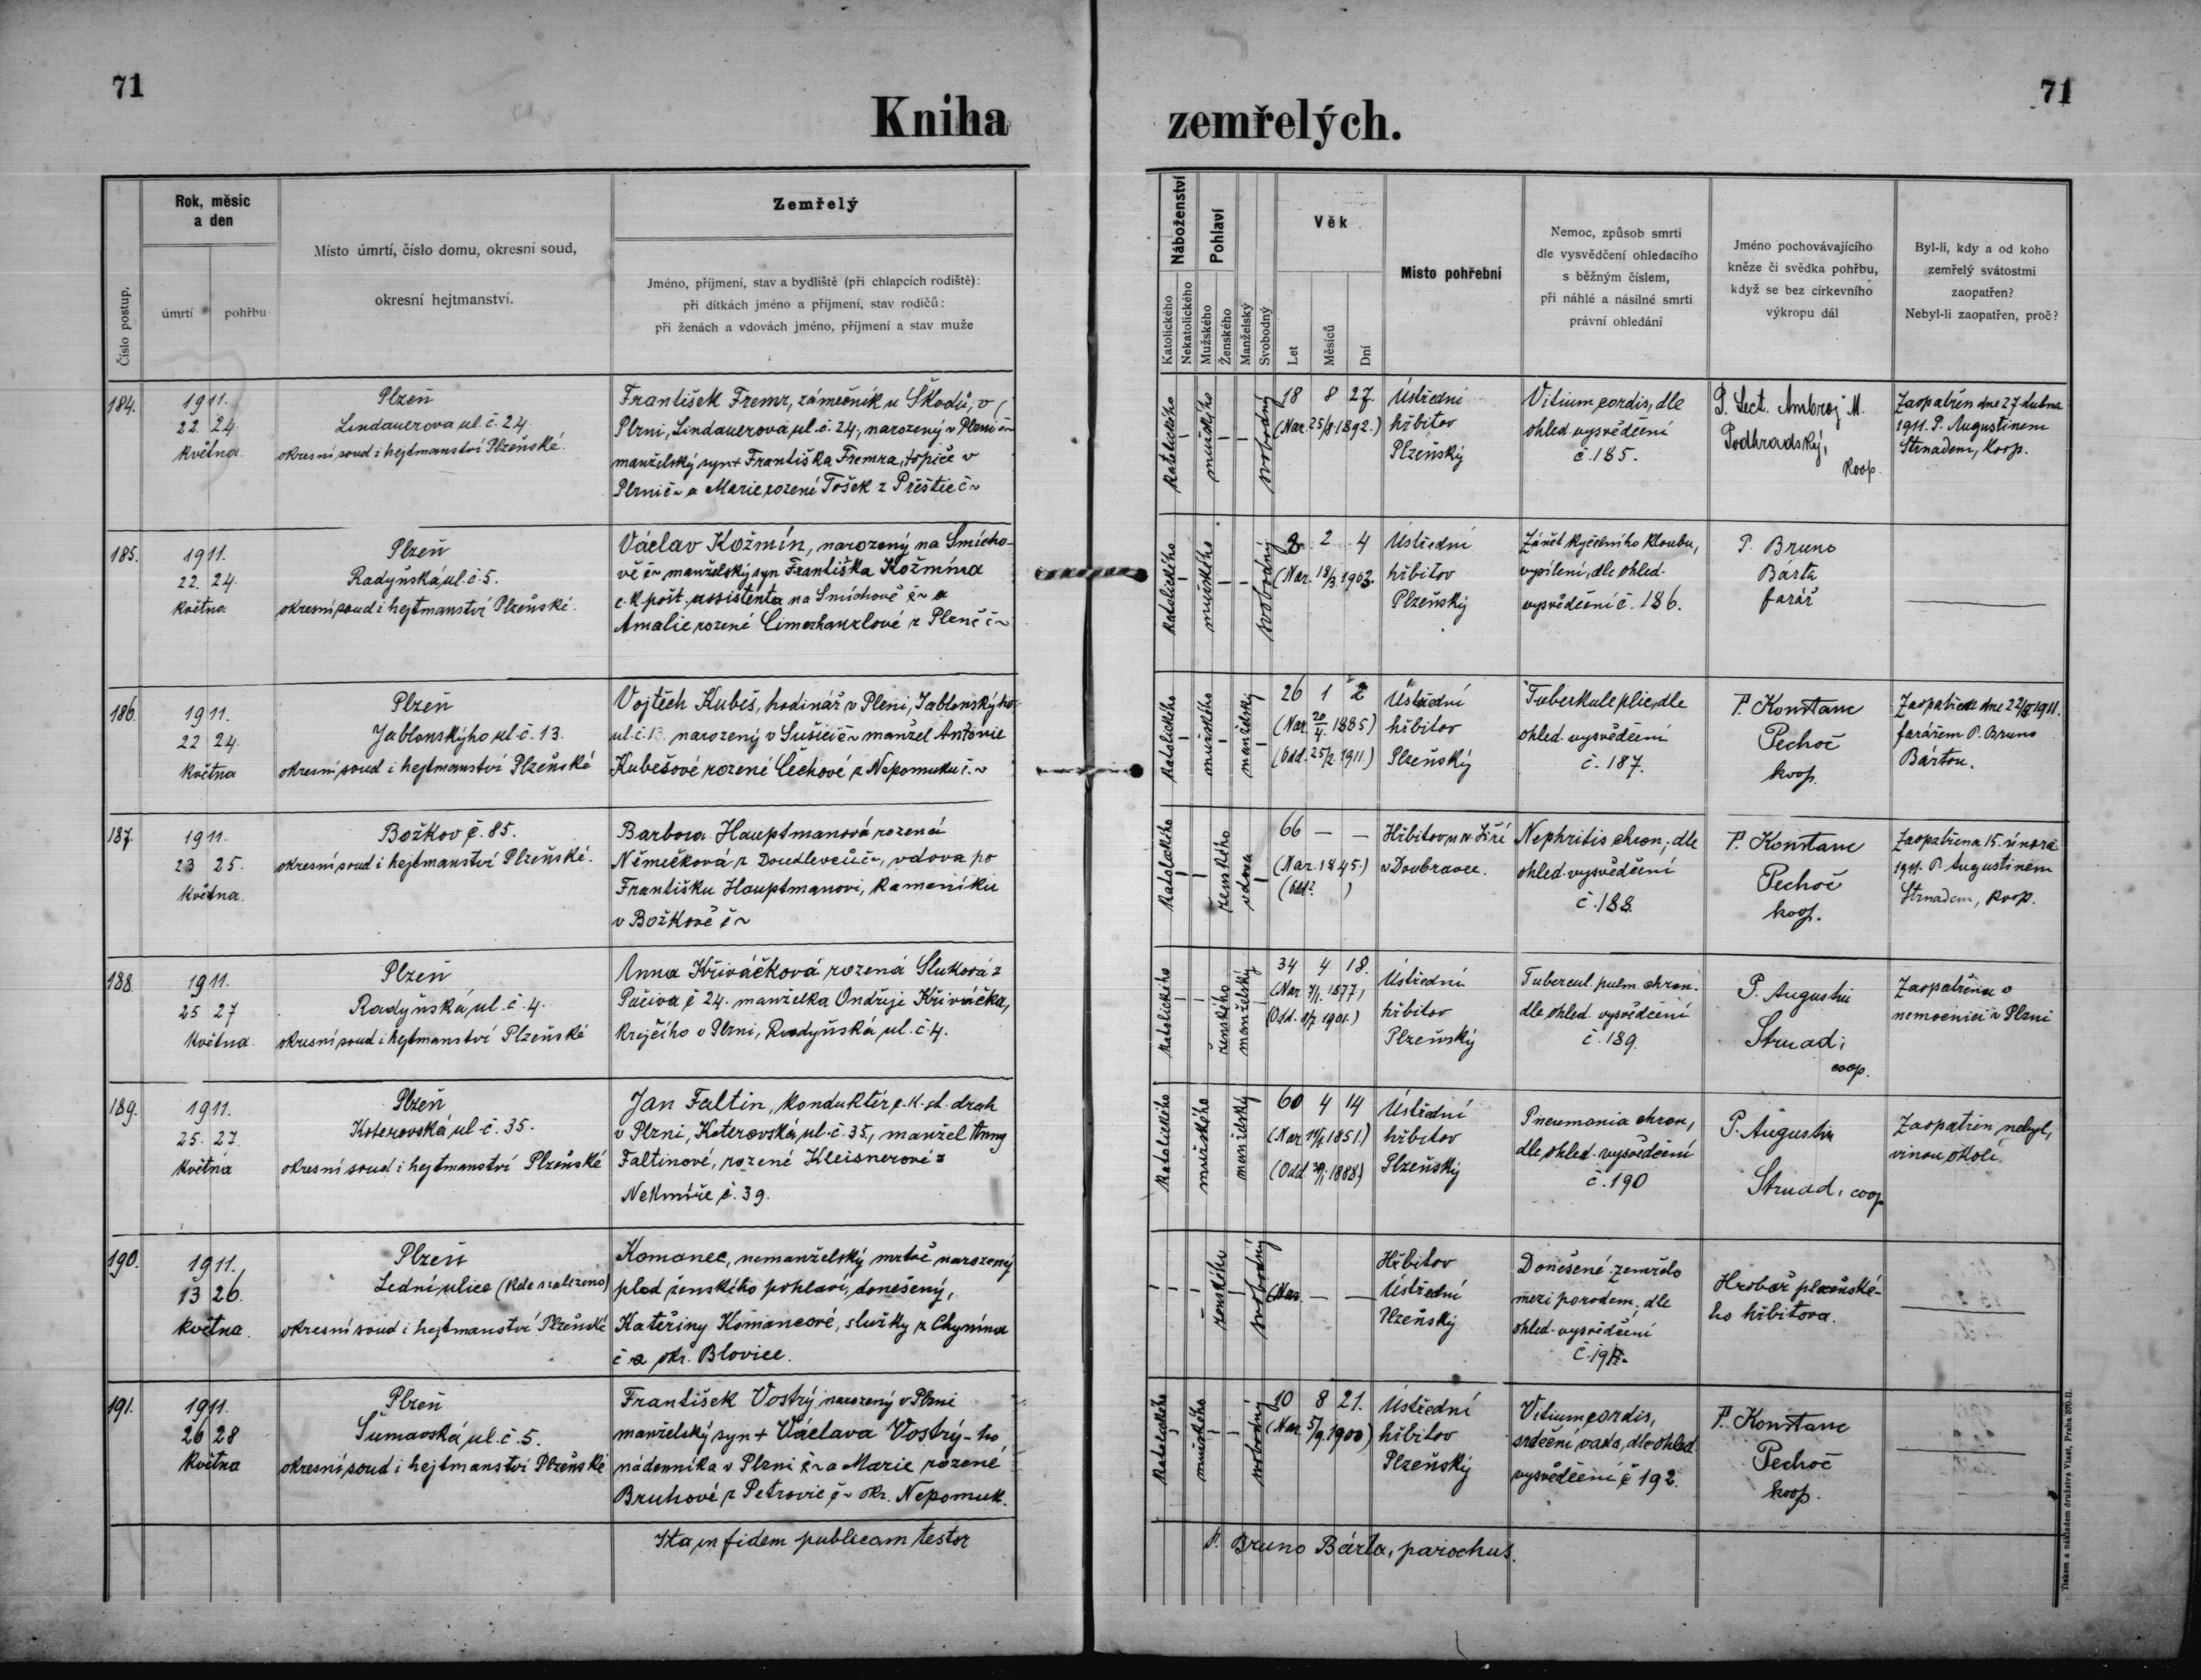 71
71
Kniha
zemřelých.
Číslo postup.
Rok, měsíc
a den
úmrtí
pohřbu
Místo úmrtí, číslo domu, okresní soud,
okresní hejtmanství.
Zemřelý
Jméno, příjmení, stav a bydliště (při chlapcích rodiště):
při dítkách jméno a příjmení, stav rodičů:
při ženách a vdovách jméno, příjmení a stav muže
Náboženství
Katolického
Nekatolického
Pohlaví
Mužského
Ženského
Manželský
Svobodný
Věk
Let
Měsíců
Dní
Místo pohřební
Nemoc, způsob smrti
dle vysvědčení ohledacího
s běžným číslem,
při náhlé a násilné smrti
právní ohledání
Jméno pochovávajícího
kněze či svědka pohřbu,
když se bez církevního
výkropu dál
Byl-li, kdy a od koho
zemřelý svátostmi
zaopatřen?
Nebyl-li zaopatřen, proč?
184.
1911.
22 24
května.
Plzeň
Lindauerova ul. č. 24.
okresní soud i hejtmanství Plzeňské.
František Fremr, zámečník u Škodů, v
Plzni, Lindauerova ul. č. 24, narozený v Plzni č ~
manželský syn + Františka Fremra, topiče v
Plzni č ~ a Marie rozené Tošek z Přeštic č ~
katolického
mužského
svobodný
18 8 27.
(Nar. 25/8 1892.)
Ústřední
hřbitov
Plzeňský
Vitium cordis, dle
ohled. vysvědčení
č. 185.
P. Lect. Ambrož M.
Podhradský,
koop.
Zaopatřen dne 27 dubna
1911. P. Augustinem
Strnadem, koop.
185.
1911.
22. 24.
května
Plzeň
Radyňská ul. č. 5.
okresní soud i hejtmanství Plzeňské.
Václav Kožmín, narozený na Smícho-
vě č ~ manželský syn Františka Kožmína
c. k. pošt. assistenta na Smíchově č ~ a
Amalie rozené Cimerhanzlové z Plzně č ~
katolického
mužského
svobodný
8. 2 4
(Nar. 18/3. 1903.
Ústřední
hřbitov
Plzeňský
Zánět kyčelního kloubu,
vysílení, dle ohled.
vysvědčení č. 186.
P. Bruno
Bárta
farář
186.
1911.
22 24
května
Plzeň
Jablonskýho ul. č. 13.
okresní soud i hejtmanství Plzeňské
Vojtěch Kubeš, hodinář v Plzni, Jablonskýho
ul. č. 13. narozený v Sušici č ~ manžel Antonie
Kubešové rozené Čechové z Nepomuku č. ~
katolického
mužského
manželský
26 1 2
(Nar. 20/4. 1885)
(Odd. 25/2. 1911.)
Ústřední
hřbitov
Plzeňský
Tuberkule plic, dle
ohled. vysvědčení
č. 187.
P. Konstanc
Pechoč
koop.
Zaopatřen dne 22/5 1911.
farářem P. Bruno
Bártou.
187.
1911.
23 25.
května.
Božkov č. 85.
okresní soud i hejtmanství Plzeňské.
Barbora Hauptmanová rozená
Němečková z Doudlevců č ~, vdova po
Františku Hauptmanovi, kameníku
v Božkově č ~
katolického
ženského
vdova
66 — —
(Nar. 1845.)
(Odd.? )
Hřbitov u sv. Jiří
v Doubravce.
Nephritis chron., dle
ohled. vysvědčení
č. 188.
P. Konstanc
Pechoč
koop.
Zaopatřena 15. února
1911. P. Augustinem
Strnadem, koop.
188.
1911.
25 27
května.
Plzeň
Radyňská ul. č. 4.
okresní soud i hejtmanství Plzeňské
Anna Křiváčková rozená Sluková z
Počiva č 24. manželka Ondřeje Křiváčka,
krejčího v Plzni, Radyňská ul. č. 4.
katolického
ženského
manželský
34 4 18.
(Nar. 7/1. 1877,
(Odd. 8/7 1901.)
Ústřední
hřbitov
Plzeňský
Tubercul. pulm. chron.
dle ohled. vysvědčení
č. 189.
P. Augustin
Strnad,
coop.
Zaopatřena v
nemocnici v Plzni
189.
1911.
25. 27.
května
Plzeň
Koterovská ul. č. 35.
okresní soud i hejtmanství Plzeňské
Jan Faltin, konduktér c. k. st. drah
v Plzni, Koterovská, ul. č. 35., manžel Anny
Faltinové, rozené Kleisnerové z
Nekmíře č. 39.
katolického
mužského
manželský
60 4 14
(Nar. 11/1 1851.)
(Odd. 1888)
Ústřední
hřbitov
Plzeňský
Pneumonia chron.,
dle ohled. vysvědčení
č. 190
P. Augustin
Strnad, coop.
Zaopatřen nebyl,
vinou okolí.
190.
1911.
13 26.
května.
Plzeň
Lední ulice (kde nalezeno)
okresní soud i hejtmanství Plzeňské
Komanec, nemanželský mrtvě narozený
plod ženského pohlaví, donešený,
Kateřiny Komancové, služky z Chynína
č. a okr. Blovice.
ženského
svobodný
(Nar. — —
Hřbitov
Ústřední
Plzeňský
Donešené zemřelo
mezi porodem, dle
ohled. vysvědčení
č. 191.
Hrobař plzeňské-
ho hřbitova.
191.
1911.
26 28
května
Plzeň
Šumavská ul. č. 5.
okresní soud i hejtmanství Plzeňské
František Vostrý, narozený v Plzni
manželský syn + Václava Vostrý-ho
nádenníka v Plzni č ~ a Marie rozené
Bruhové z Petrovic č ~ okr. Nepomuk.
katolického
mužského
svobodný
10 8 21.
(Nar. 5/9. 1900)
Ústřední
hřbitov
Plzeňský
Vitium cordis,
srdeční vada, dle ohled.
vysvědčení č 192.
P. Konstanc
Pechoč
koop.
Ita in fidem publicam testor
P. Bruno Bárta, parochus.
Tiskem a nákladem družstva Vlast, Praha 570-II.